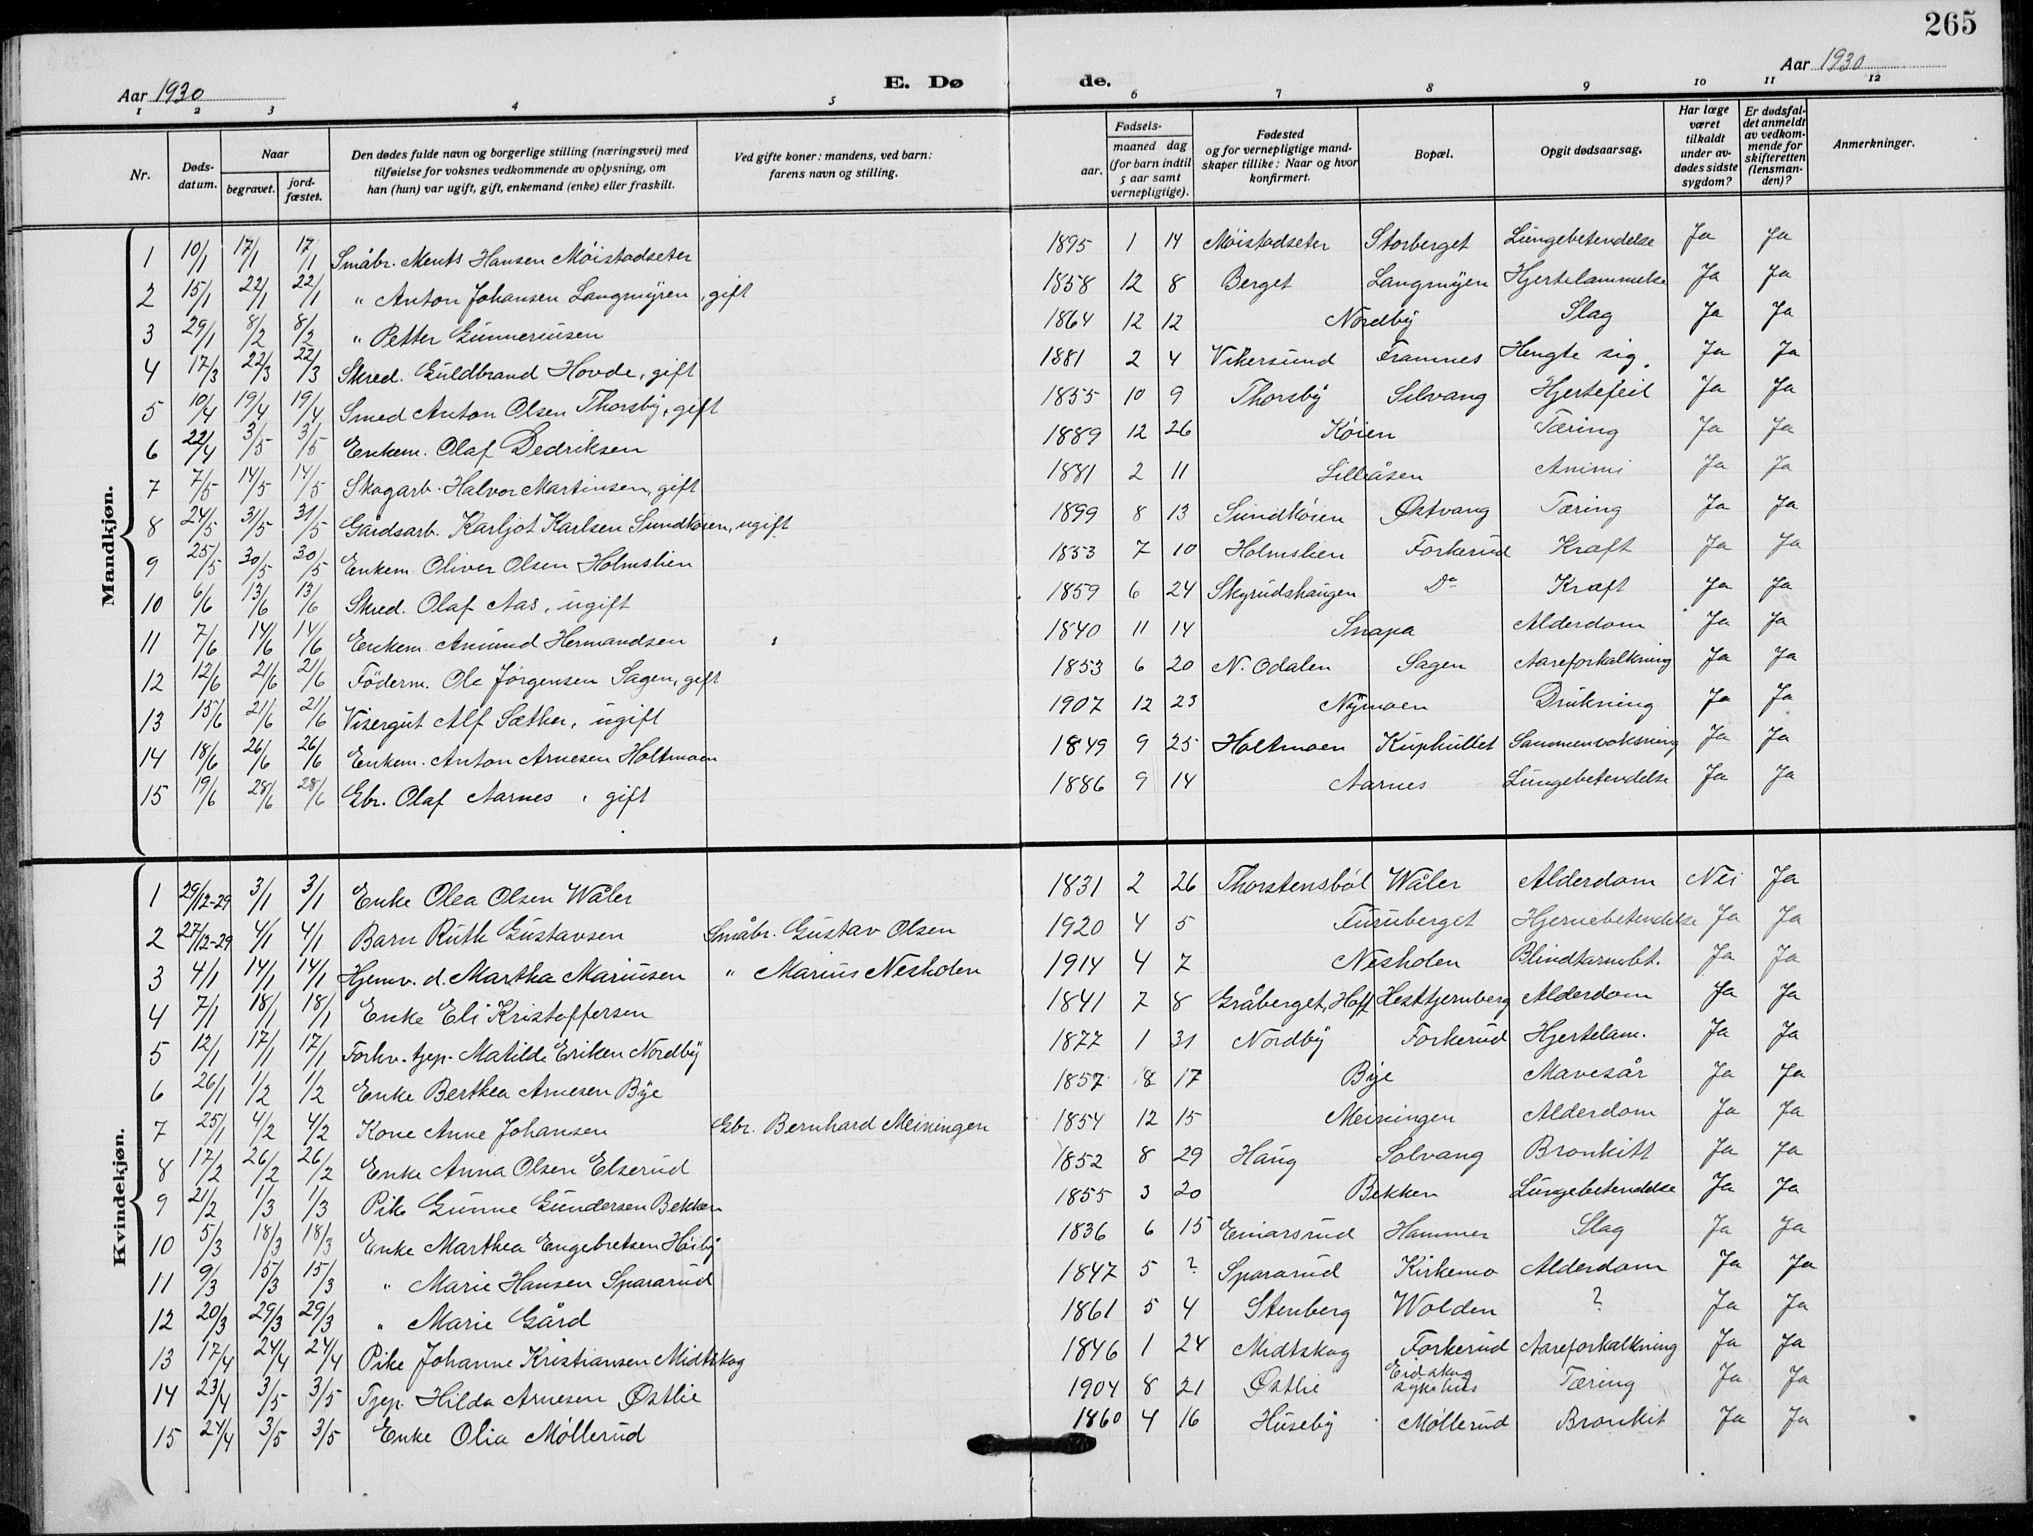 265
Aar 1930
E. Dø
de.
Aar 1930
1 2 3 4 5 6 7 8 9 10 11 12
Nr.
Døds-
datum.
Naar
begravet.
jord-
fæstet.
Den dødes fulde navn og borgerlige stilling (næringsvei) med
tilføielse for voksnes vedkommende av oplysning, om
han (hun) var ugift, gift, enkemand (enke) eller fraskilt.
Ved gifte koner: mandens, ved barn:
farens navn og stilling.
Fødsels-
aar.
maaned dag
(for barn indtil
5 aar samt
vernepligtige).
Fødested
og for vernepligtige mand-
skaper tillike: Naar og hvor
konfirmert.
Bopæl.
Opgit dødsaarsag.
Har læge
været
tilkaldt
under av-
dødes sidste
sygdom?
Er dødsfal-
det anmeldt
av vedkom-
mende for
skifteretten
(lensman-
den)?
Anmerkninger.
Mandkjøn.
1 10/1 17/1 17/1 Småbr. Ments Hansen Möistadseter 1895 1 14 Möistadseter Storberget Lungebetendelse Ja Ja
2 15/1 22/1 22/1 " Anton Johansen Langmyren, gift 1858 12 8 Berget Langmyen Hjertelammelse Ja Ja
3 29/1 8/2 8/2 " Petter Gunneriusen 1864 12 12 Nordby Slag Ja Ja
4 17/3 22/3 22/3 Skred. Guldbrand Hovde, gift 1881 2 4 Vikersund Framnes Hengte sig. Ja Ja
5 10/4 19/4 19/4 Smed Anton Olsen Thorsby, gift 1855 10 9 Thorsby Solvang Hjertefeil Ja Ja
6 22/4 3/5 3/5 Enkem. Olaf Dedriksen 1889 12 26 Köien Tæring Ja Ja
7 7/5 14/5 14/5 Skogarb. Halvor Martinsen, gift 1881 2 11 Lilleåsen Animi Ja Ja
8 24/5 31/5 31/5 Gårdsarb. Karljot Karlsen Sundköien, ugift 1899 8 13 Sundköien Østvang Tæring Ja Ja
9 25/5 30/5 30/5 Enkem. Oliver Olsen Holmslien 1853 7 10 Holmslien Forkerud Kræft Ja Ja
10 6/6 13/6 13/6 Skred. Olaf Aas, ugift 1859 6 24 Skyrudshaugen Do Kræft Ja Ja
11 7/6 14/6 14/6 Enkem. Amund Hermandsen 1840 11 14 Snapa Alderdom Ja Ja
12 12/6 21/6 21/6 Föderm. Ole Jörgensen Sagen, gift 1853 6 20 N. Odalen Sagen Aareforkalkning Ja Ja
13 15/6 21/6 21/6 Visergut Alf Sæther, ugift 1907 12 23 Nymoen Drukning Ja Ja
14 18/6 26/6 26/6 Enkem. Anton Arnesen Holtmoen 1849 9 25 Holtmoen Kuphullet Sammenvoksning Ja Ja
15 19/6 28/6 28/6 Gbr. Olaf Aarnes, gift 1886 9 14 Aarnes Lungebetendelse Ja Ja
Kvindekjøn.
1 29/12-29 3/1 3/1 Enke Olea Olsen Wåler 1831 2 26 Thorstensböl Wåler Alderdom Nei Ja
2 27/12-29 4/1 4/1 Barn Ruth Gustavsen Småbr. Gustav Olsen 1920 4 5 Furuberget Hjernebetendelse Ja Ja
3 4/1 14/1 14/1 Hjemv. d. Martha Mariusen " Marius Nesholen 1914 4 7 Nesholen Blindtarmbt. Ja Ja
4 7/1 18/1 18/1 Enke Eli Kristoffersen 1841 7 8 Gråberget, Hoff Hesttjernberg Alderdom Ja Ja
5 12/1 17/1 17/1 Forhv. tjep. Matilde Eriken Nordby 1877 1 31 Nordby Forkerud Hjertelam. Ja Ja
6 26/1 1/2 1/2 Enke Berthea Arnesen Bye 1857 8 17 Bye Mavesår Ja Ja
7 25/1 4/2 4/2 Kone Anne Johansen Gbr. Bernhard Meiningen 1854 12 15 Meiningen Alderdom Ja Ja
8 17/2 26/2 26/2 Enke Anna Olsen Elserud 1852 8 29 Haug Solvang Bronkitt Ja Ja
9 21/2 1/3 1/3 Pike Gunne Gundersen Bekken 1855 3 20 Bekken Lungebetendelse Ja Ja
10 5/3 18/3 18/3 Enke Marthea Engebretsen Høiby 1836 6 15 Einarsrud Hammer Slag Ja Ja
11 9/3 15/3 15/3 " Marie Hansen Spararud 1847 5 ? Spararud Kirkemo Alderdom Ja Ja
12 20/3 29/3 29/3 " Marie Gård 1861 5 4 Stenberg Wolden ? Ja Ja
13 17/4 24/4 24/4 Pike Johanne Kristiansen Midtskog 1846 1 24 Midtskog Forkerud Aareforkalkning Ja Ja
14 23/4 3/5 3/5 Tjep. Hilda Arnesen Østlie 1904 8 21 Østlie Eidskog sykehus Tæring Ja Ja
15 24/4 3/5 3/5 Enke Olia Møllerud 1860 4 16 Huseby Møllerud Bronkit Ja Ja